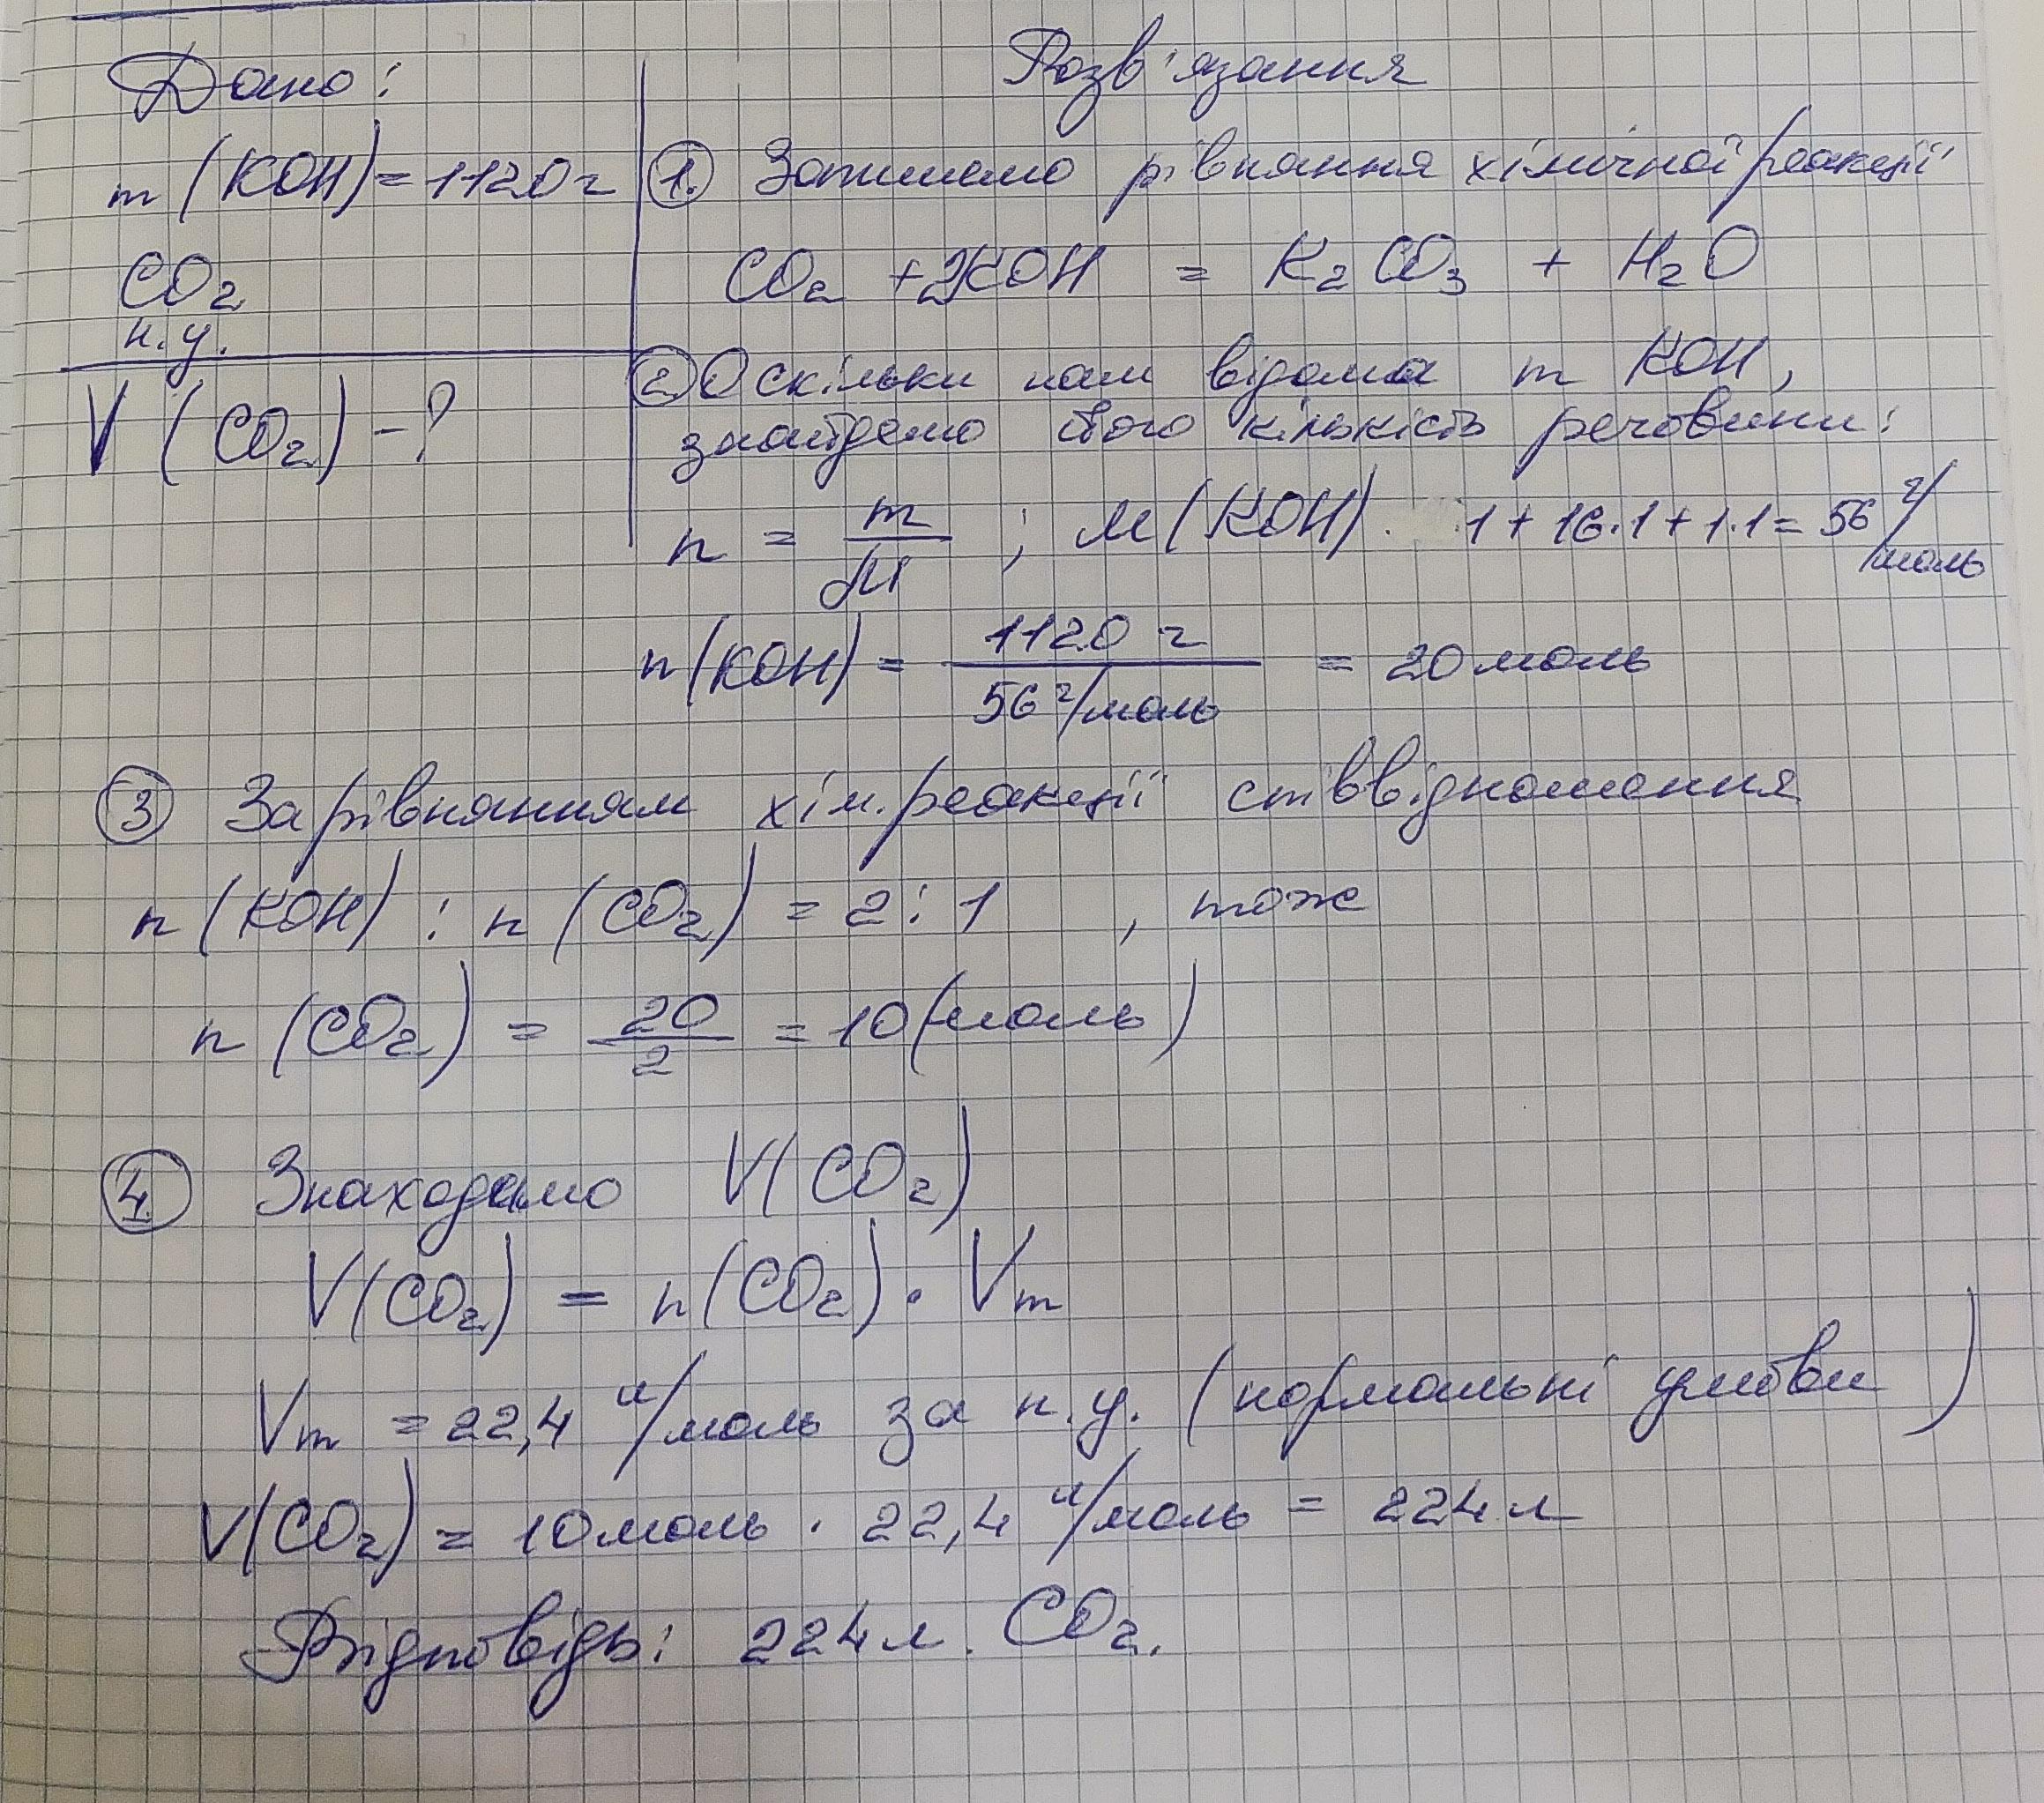 Дано:
m (KOH) = 1120 г
CO₂
н.у.
V (CO₂) - ?
Розв'язання
1. Запишемо рівняння хімічної реакції
CO₂ + 2KOH = K₂CO₃ + H₂O
2. Оскільки нам відома m KOH,
знайдемо його кількість речовини:
n = m/M ; M (KOH) 1 + 16·1 + 1·1 = 56 г/моль
n(KOH) = 1120 г / 56 г/моль = 20 моль
3 За рівнянням хім. реакції співвідношення
n (KOH) : n (CO₂) = 2 : 1 , тоже
n (CO₂) = 20/2 = 10 (моль)
4. Знаходимо V(CO₂)
V(CO₂) = n(CO₂) · Vm
Vm = 22,4 л/моль за н.у. (нормальні умови)
V(CO₂) = 10 моль · 22,4 л/моль = 224 л
Відповідь: 224 л. CO₂.